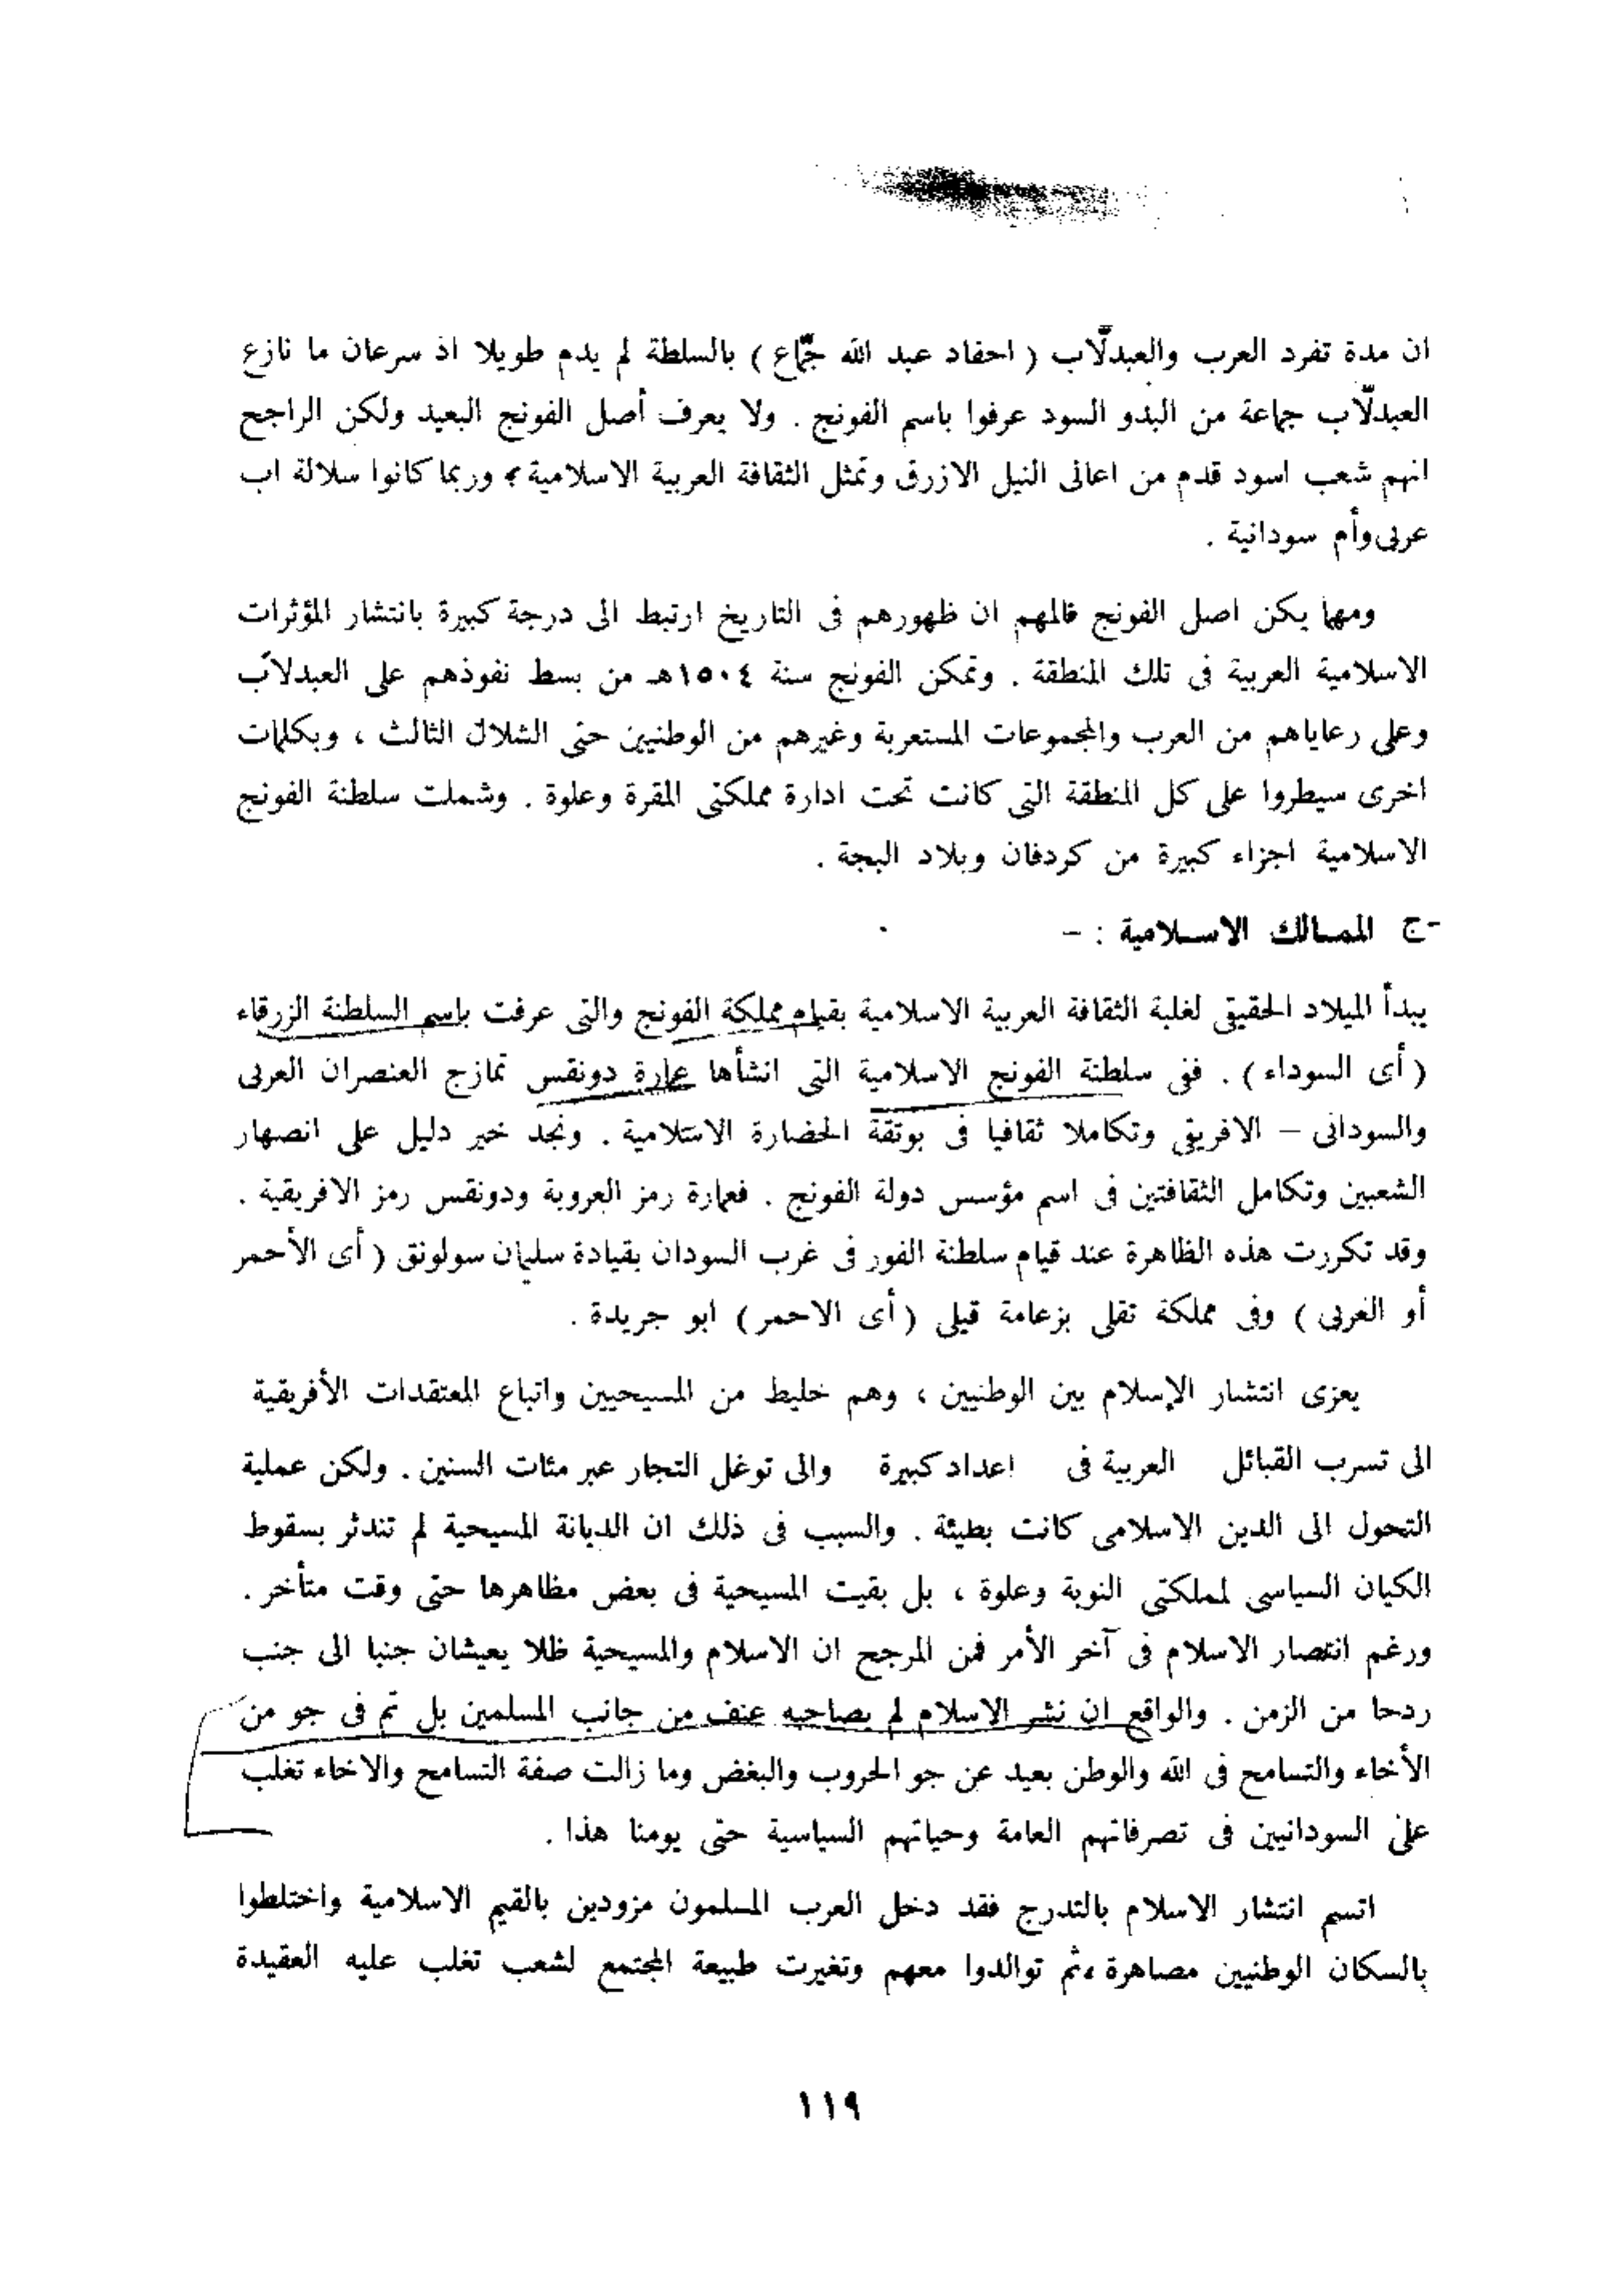 ان مدة تفرد العرب والعبدلّاب ( احفاد عبد الله جمّاع ) بالسلطة لم يدم طويلا اذ سرعان ما نازع
العبدلّاب جماعة من البدو السود عرفوا باسم الفونج . ولا يعرف أصل الفونج البعيد ولكن الراجح
انهم شعب اسود قدم من اعالى النيل الازرق وتمثل الثقافة العربية الاسلامية ، وربما كانوا سلالة اب
عربى وأم سودانية .
ومهما يكن اصل الفونج فالمهم ان ظهورهم فى التاريخ ارتبط الى درجة كبيرة بانتشار المؤثرات
الاسلامية العربية فى تلك المنطقة . وتمكن الفونج سنة ١٥٠٤هـ من بسط نفوذهم على العبدلاب
وعلى رعاياهم من العرب والمجموعات المستعربة وغيرهم من الوطنيين حتى الشلال الثالث ، وبكلمات
اخرى سيطروا على كل المنطقة التى كانت تحت ادارة مملكتى المقرة وعلوة . وشملت سلطنة الفونج
الاسلامية اجزاء كبيرة من كردفان وبلاد البجة .
-ج الممالك الاسلامية : –
يبدأ الميلاد الحقيقى لغلبة الثقافة العربية الاسلامية بقيام مملكة الفونج والتى عرفت باسم السلطنة الزرقاء
( أى السوداء ) . ففى سلطنة الفونج الاسلامية التى انشأها عمارة دونقس تمازج العنصران العربى
والسودانى – الافريقى وتكاملا ثقافيا فى بوتقة الحضارة الاسلامية . ونجد خير دليل على انصهار
الشعبين وتكامل الثقافتين فى اسم مؤسس دولة الفونج . فعمارة رمز العروبة ودونقس رمز الافريقية .
وقد تكررت هذه الظاهرة عند قيام سلطنة الفور فى غرب السودان بقيادة سليمان سولونق ( أى الأحمر
أو الغربى ) وفى مملكة تقلى بزعامة قيلى ( أى الاحمر ) ابو جريدة .
يعزى انتشار الإسلام بين الوطنيين ، وهم خليط من المسيحيين واتباع المعتقدات الأفريقية
الى تسرب القبائل العربية فى اعداد كبيرة والى توغل التجار عبر مئات السنين . ولكن عملية
التحول الى الدين الاسلامى كانت بطيئة . والسبب فى ذلك ان الديانة المسيحية لم تندثر بسقوط
الكيان السياسى لمملكتى النوبة وعلوة ، بل بقيت المسيحية فى بعض مظاهرها حتى وقت متأخر .
ورغم انتصار الاسلام فى آخر الأمر فمن المرجح ان الاسلام والمسيحية ظلا يعيشان جنبا الى جنب
ردحا من الزمن . والواقع ان نشر الاسلام لم يصاحبه عنف من جانب المسلمين بل تم فى جو من
الأخاء والتسامح فى الله والوطن بعيد عن جو الحروب والبغض وما زالت صفة التسامح والاخاء تغلب
على السودانيين فى تصرفاتهم العامة وحياتهم السياسية حتى يومنا هذا .
اتسم انتشار الاسلام بالتدرج فقد دخل العرب المسلمون مزودين بالقيم الاسلامية واختلطوا
بالسكان الوطنيين مصاهرة ، ثم توالدوا معهم وتغيرت طبيعة المجتمع لشعب تغلب عليه العقيدة
١١٩